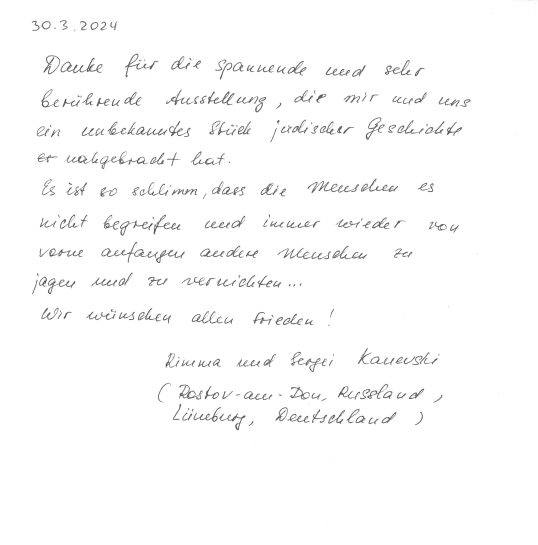 30.3.2024
Danke für die spannende und sehr
berührende Ausstellung, die mir und uns
ein unbekanntes Stück jüdischer Geschichte
er nahgebracht hat.
Es ist so schlimm, dass die Menschen es
nicht begreifen und immer wieder von
vorne anfangen andere Menschen zu
jagen und zu vernichten...
Wir wünschen allen Frieden!
Rimma und Sergei Kanevski
(Rostov-am-Don, Russland,
Lüneburg, Deutschland)